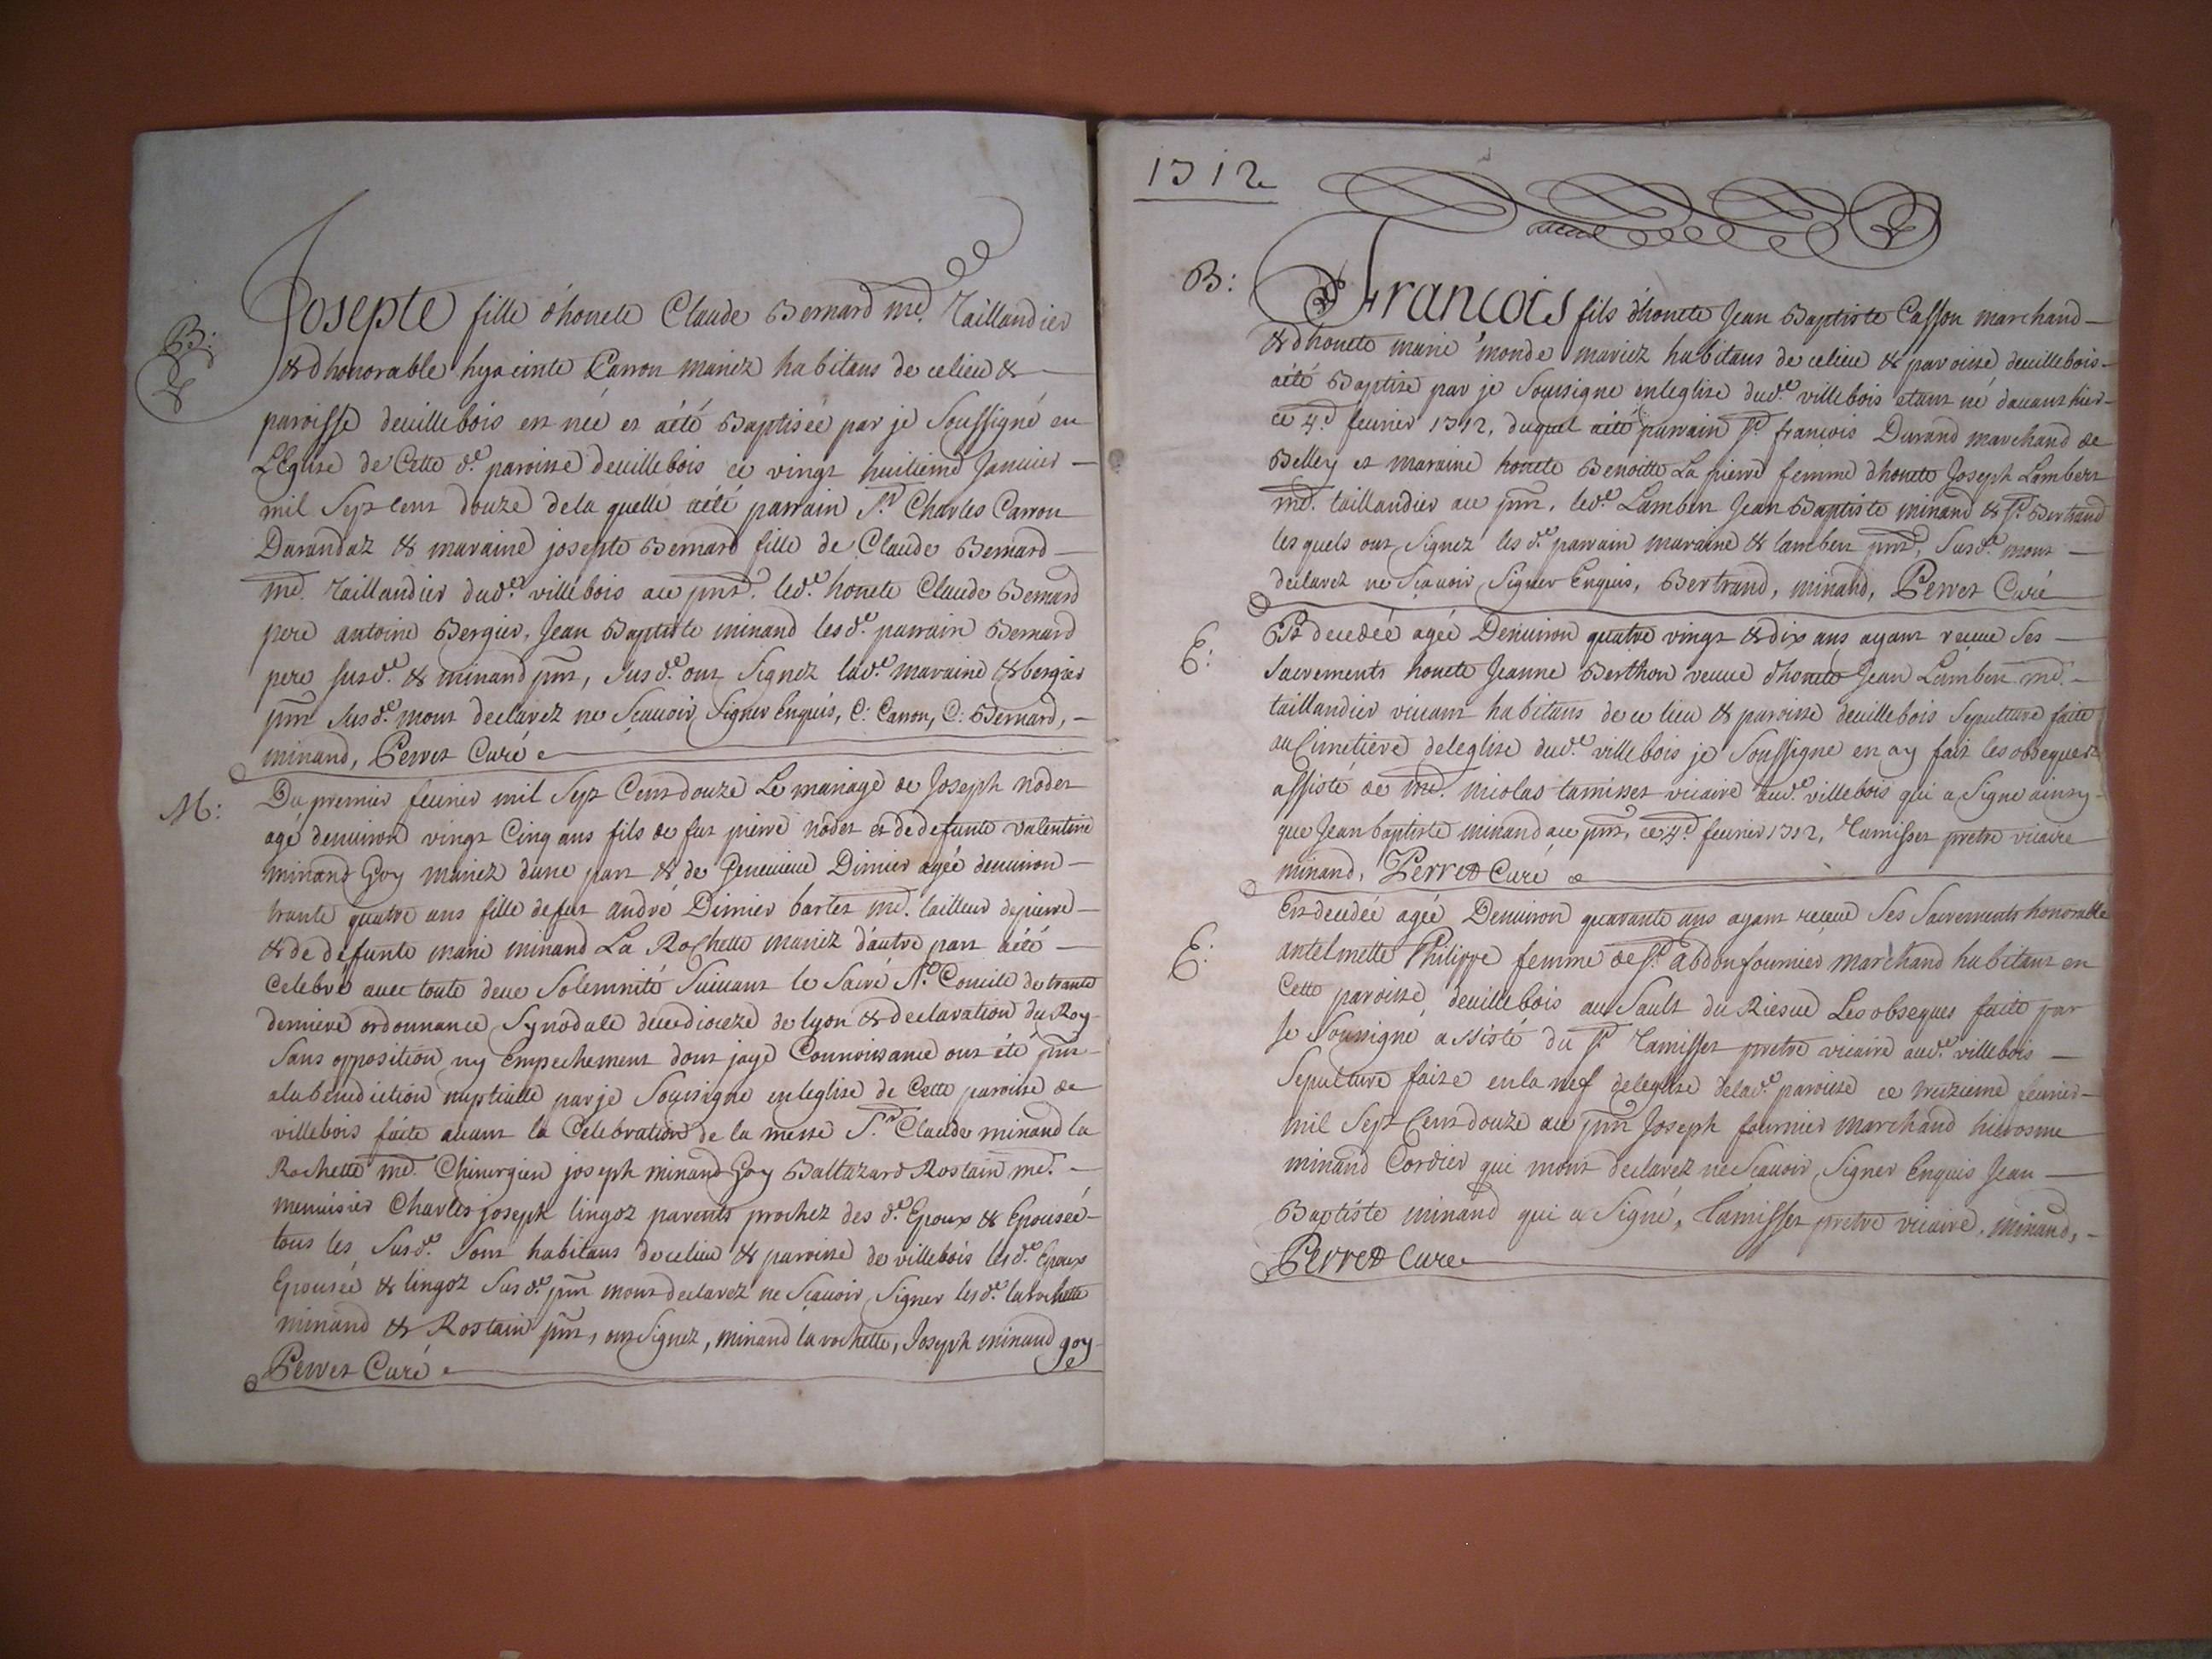 B:
Josepte fille d'honete Claude Bernard md. Taillandier
& dhonorable hyacinte Carron mariez habitans de ce lieu &
paroisse deuillebois est née et aété Baptisée par je Soussigné en
LEglise de Cette d.e paroisse deuillebois ce vingt huitieme Januier
mil Sept cent douze dela quelle aété parrain S.r Charles Carron
Darandaz & maraine josepte Bernard fille de Claude Bernard
md. Taillandier dud.t villebois au pnt. led.t honete Claude Bernard
pere antoine Bergier, Jean Baptiste minand lesd.t parrain Bernard
pere susd.t & minand pnt, Susd.t ont Signez lad.e maraine & bergier
pnt Susd.t mont declarez ne Scauoir Signer Enquis, C: Carron, C: Bernard,
minand, Perret Curé
M:
Du premier feurier mil Sept Cent douze Le mariage de Joseph nodet
agé denuiron vingt Cinq ans fils de fut pierre nodet et de defunte valentine
minand Goy mariez dune part & de Geneuieue Dimier agée denuiron
trante quatre ans fille defut andré Dimier bartet md. tailleur depierre
& de defunte marie minand La Rochette mariez d'autre part aété
Celebré auec toute deue Solemnité Suiuant le Sacré St. Concile de trante
derniere ordonnance Synodale decediocize de lyon & declaration du Roy
Sans opposition ny Empechement dont jaye Connoissance ont été pnt
alabenediction nuptialle par je Soussigné enleglise de Cette paroisse de
villebois faite auant la Celebration de la messe S.r Claude minand la
Rochette md. Chirurgien joseph minand Goy Baltazard Rostain md.
menuisier Charles joseph lingoz parents prochez des d.t Epoux & Epousée
tous les Susd.t Sont habitans decelieu & paroisse de villebois lesd.t Epoux
Epousée & lingoz Susd.t pnt mont declarez ne Scauoir Signer lesd.t larochette
minand & Rostain pnt, ont Signez, minand la rochette, Joseph minand goy
Perret Curé
1712
B:
Francois fils d'honete Jean Baptiste Casson marchand
& dhonete marie monde mariez habitans de celieu & paroisse deuillebois
aété Baptisé par je Soussigné enleglise dud.t villebois etant né dauant hier
ce 4.e feurier 1712, duquel aété parrain S.r francois Durand marchand de
Belley et maraine honete Benoitte La pierre femme dhonete Joseph Lambert
md. taillandier au pnt, led.t Lambert Jean Baptiste minand & S.r Bertrand
lesquels ont Signez les d.t parrain maraine & lambert pnt, Susd.t mont
declarez ne Scauoir Signer Enquis, Bertrand, minand, Perret Curé
E:
Est decedée agée Denuiron quatre vingt & dix ans ayant receue Ses
Sacrements honete Jeanne Berthon veuue dhonete Jean Lambert md.
taillandier viuant habitans de ce lieu & paroisse deuillebois Sepulture faite
au Cimetiere deleglise dud.t villebois je Soussigné en ay fait les obseques
assisté de md. nicolas tamisset vicaire aud.t villebois qui a Signé ainsy
que Jean baptiste minand au pnt, ce 4.e feurier 1712, Tamisset pretre vicaire
minand, Perret Curé
E:
Est decedée agée Denuiron quarante ans ayant receue Ses Sacrements honorable
antelmette Philippe femme de S.r abdon fournier marchand habitans en
Cette paroisse deuillebois au Sault du Riesue Les obseques faite par
Je Soussigné assisté du S.r Tamisset pretre vicaire aud.t villebois
Sepulture faite enla nef deleglise delad.e paroisse ce treizieme feurier
mil Sept Cent douze au pnt Joseph fournier marchand hierosme
minand Cordier qui mont declarez ne Scauoir Signer Enquis Jean
Baptiste minand qui a Signé, Tamisset pretre vicaire, minand,
Perret Curé